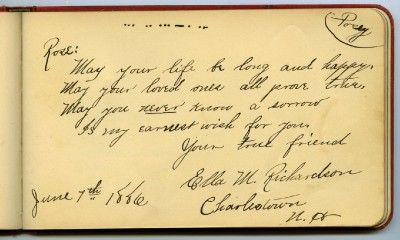 Rose:
May your life be long and happy.
May your loved ones all prove true.
May you never know a sorrow
Is my earnest wish for you.
Your true friend
Ella M. Richardson
June 7th 1886
Charlestown
N. H